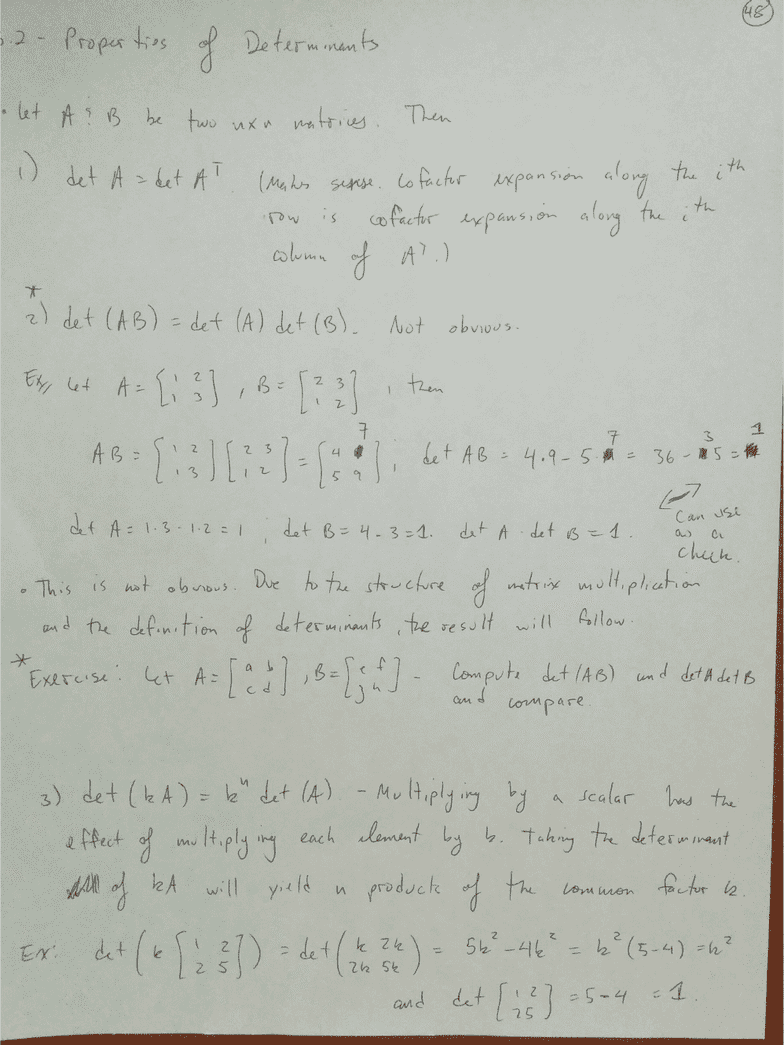 48
.2 - Properties of Determinants
• Let A & B be two nxn matrices. Then
1) det A = det Aᵀ. (Makes sense. Cofactor expansion along the ith
row is cofactor expansion along the ith
column of Aᵀ.)
*
2) det (AB) = det (A) det (B). Not obvious.
Ex// Let A = [1 2; 1 3], B = [2 3; 1 2], then
AB = [1 2; 1 3] [2 3; 1 2] = [4 7; 5 9]; det AB = 4·9 - 5·7 = 36 - 35 = 1
det A = 1·3 - 1·2 = 1, det B = 4 - 3 = 1. det A · det B = 1.
Can use
as a
check.
• This is not obvious. Due to the structure of matrix multiplication
and the definition of determinants, the result will follow.
*
Exercise: Let A = [a b; c d], B = [e f; g h] - Compute det (AB) and det A det B
and compare
3) det (kA) = kⁿ det (A) - Multiplying by a scalar has the
effect of multiplying each element by k. Taking the determinant
of kA will yield n products of the common factor k.
Ex: det (k [1 2; 2 5]) = det (k 2k; 2k 5k) = 5k² - 4k² = k² (5-4) = k²
and det [1 2; 2 5] = 5-4 = 1.